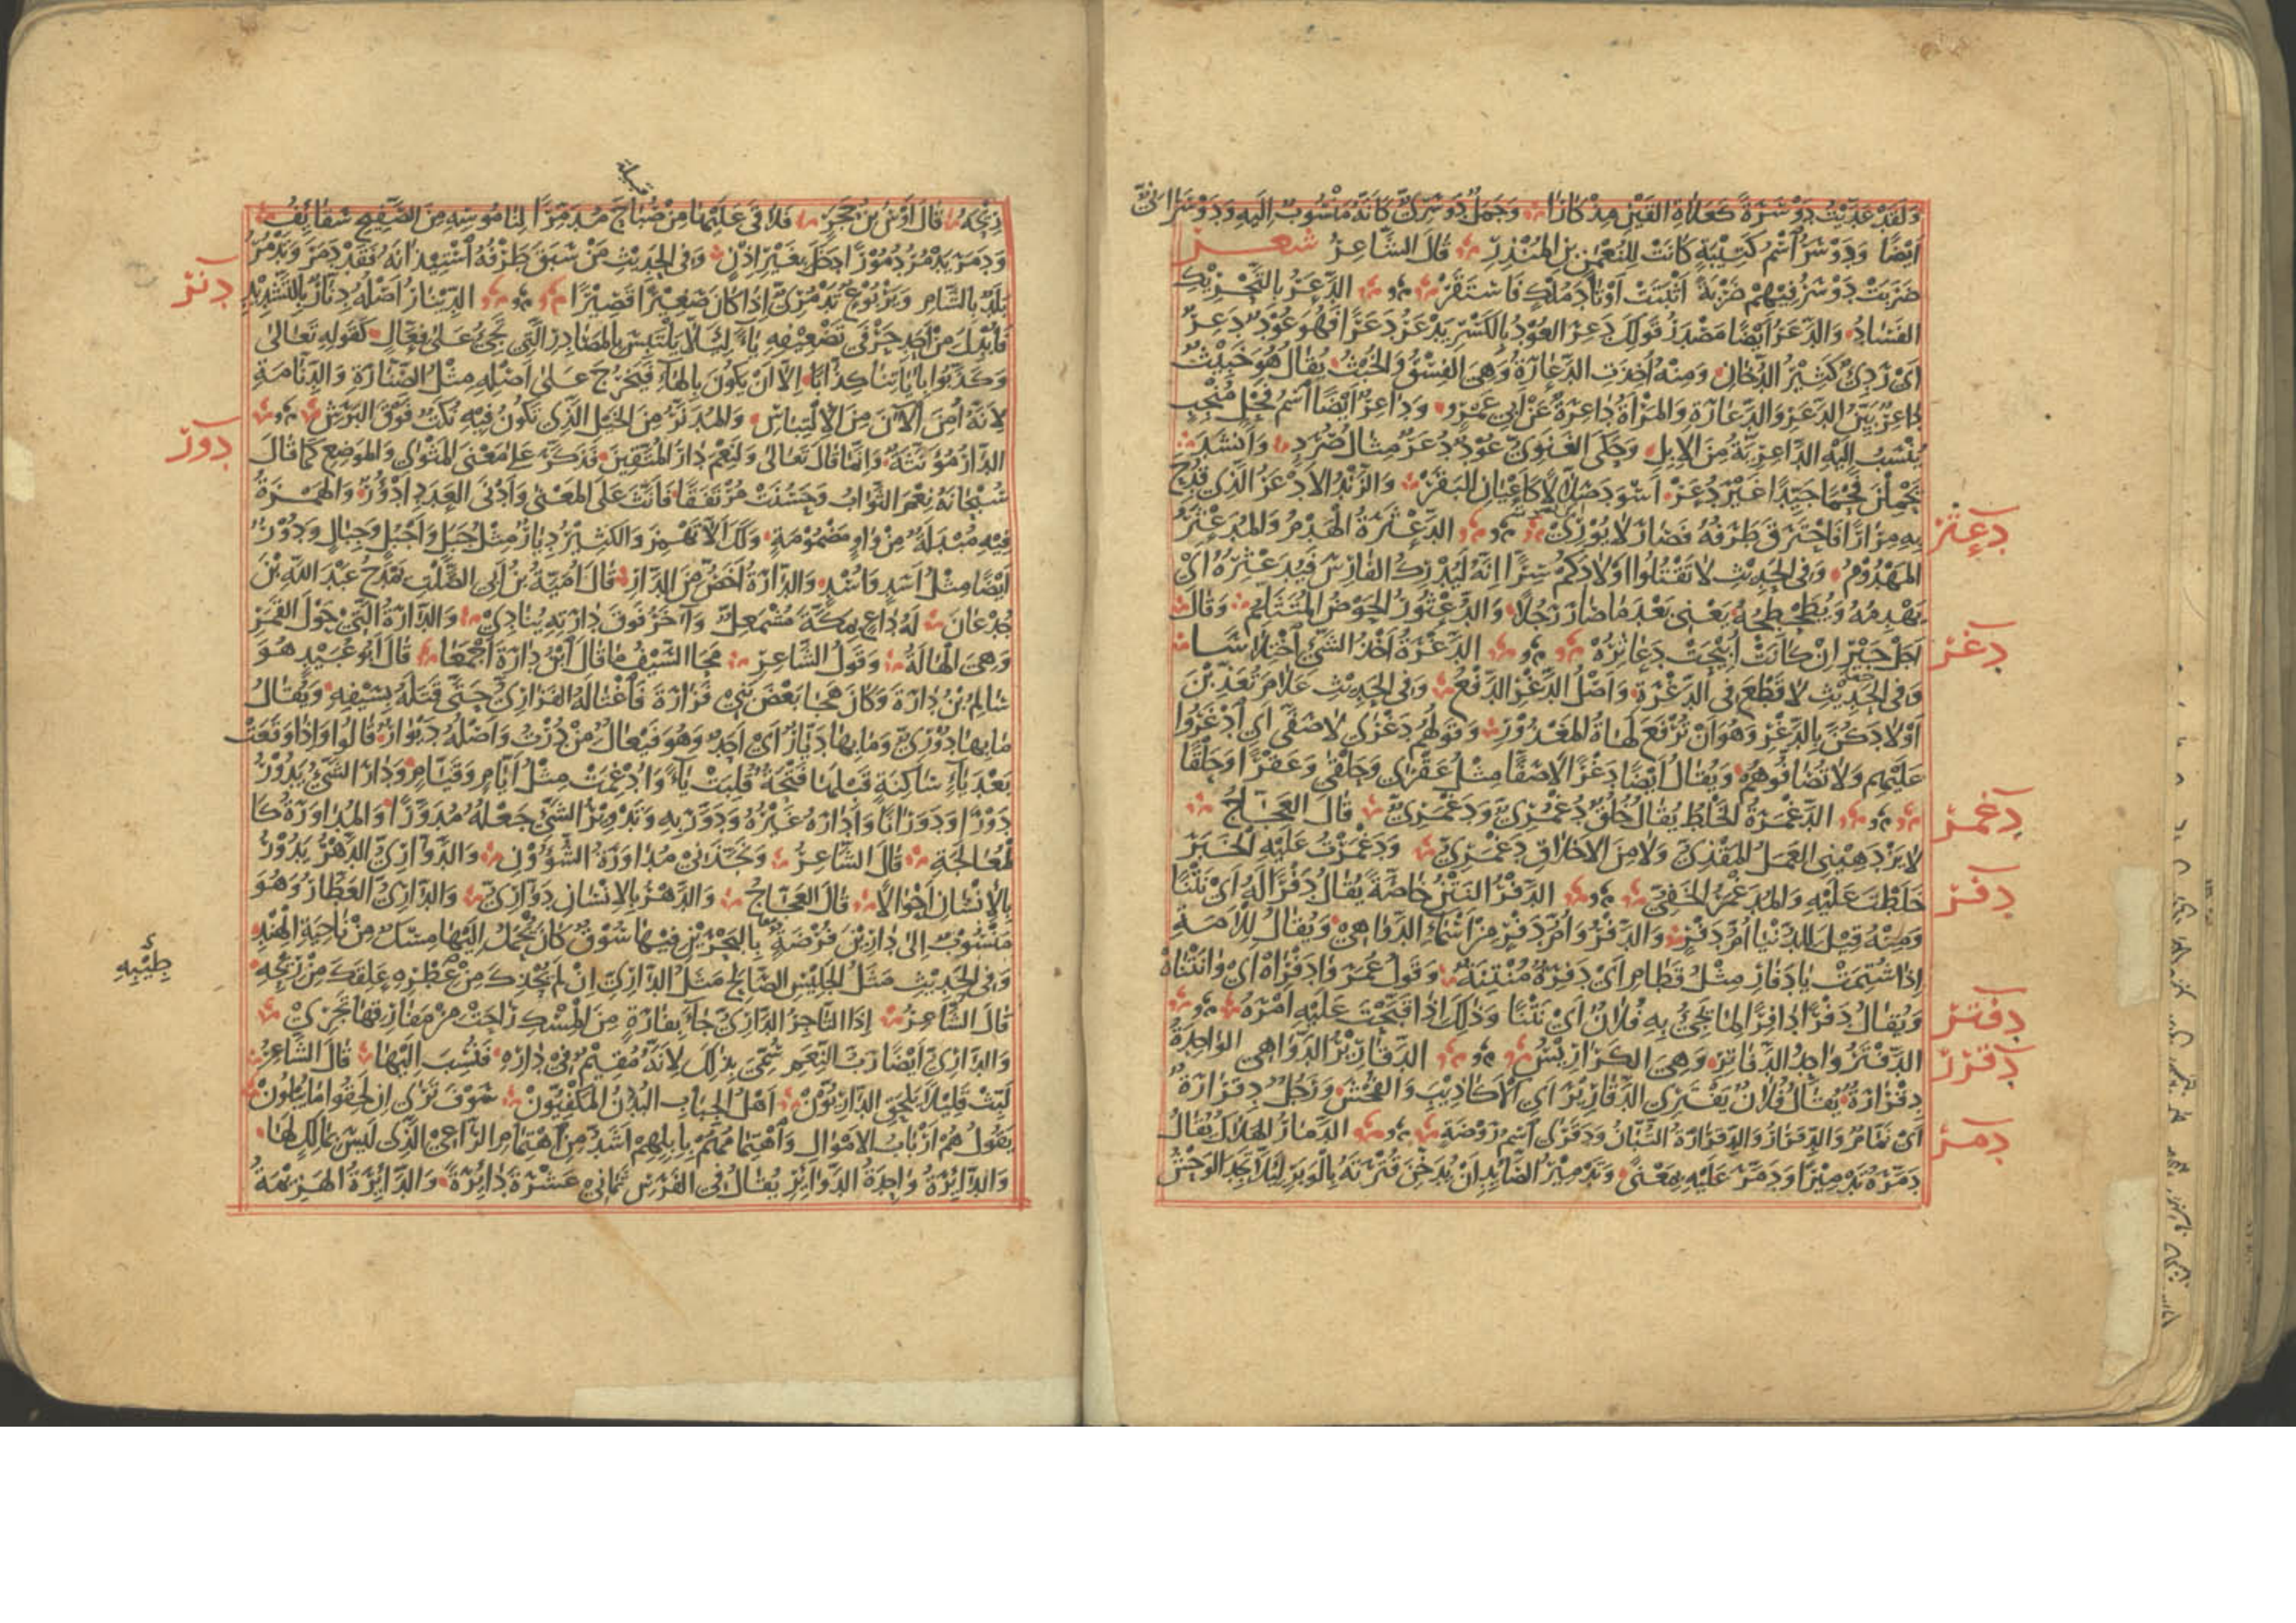 وَلَقَدْ عَدَّيْتُ دَوْسَرَةً كَعَلَاةِ القَيْنِ مِذْكَارًا وَجَمَلٌ دَوْسَرِيٌّ كَأَنَّهُ مَنْسُوبٌ إِلَيْهِ وَدَوْسَرَانِيٌّ
أَيْضًا وَدَوْسَرُ اسْمُ كَتِيْبَةٍ كَانَتْ لِلنُّعْمٰنِ بْنِ المُنْذِرِ قَالَ الشَّاعِرُ شعر
ضَرَبَتْ دَوْسَرُ فِيْهِمْ ضَرْبَةً أَثْبَتَتْ أَوْتَادَ مُلْكٍ فَاسْتَقَرّْ الدَّعَرُ بِالتَّحْرِيْكِ
الفَسَادُ وَالدَّعَرُ أَيْضًا مَصْدَرُ قَوْلِكَ دَعِرَ العُوْدُ بِالكَسْرِ يَدْعَرُ دَعَرًا فَهُوَ عُوْدٌ دَعِرٌ
أَيْ رَدِيٌّ كَثِيْرُ الدُّخَانِ وَمِنْهُ أُخِذَتِ الدَّعَارَةُ وَهِيَ الفِسْقُ وَالخُبْثُ يُقَالُ هُوَ خَبِيْثٌ
دَاعِرٌ بَيِّنُ الدَّعَرِ وَالدَّعَارَةِ وَالمَرْأَةُ دَاعِرَةٌ عَنْ أَبِي عَمْرٍو وَدَاعِرٌ أَيْضًا اسْمُ فَحْلٍ مُنْجِبٍ
يُنْسَبُ إِلَيْهِ الدَّاعِرِيَّةُ مِنَ الإِبِلِ وَحَكَى الغَنَوِيُّ عُوْدٌ دُعَرٌ مِثَالُ صُرَدٍ وَأَنْشَدَ
يَحْمِلْنَ فَحْمًا جَيِّدًا غَيْرَ دُعَرْ أَسْوَدَ صَلَّالًا كَأَعْيَانِ البَقَرْ وَالزَّنْدُ الأَدْعَرُ الَّذِي قُدِحَ
بِهِ مِرَارًا فَاحْتَرَقَ طَرَفُهُ فَصَارَ لَا يُوْرِيْ الدَّعْثَرَةُ الهَدْمُ وَالمُدَعْثَرُ
دعثر
المَهْدُوْمُ وَفِي الحَدِيْثِ لَا تَقْتُلُوا أَوْلَادَكُمْ سِرًّا إِنَّهُ لَيُدْرِكُ الفَارِسَ فَيُدَعْثِرُهُ أَيْ
يَهْدِمُهُ وَيُطَحْطِحُهُ يَعْنِي بَعْدَ مَا صَارَ رَجُلًا وَالدُّعْثُوْرُ الحَوْضُ المُتَثَلِّمُ وَقَالَ
أَجَلْ جَيْرِ إِنْ كَانَتْ أُبِيْحَتْ دَعَاثِرُهْ الدَّغْرَةُ أَخْذُ الشَّيْءِ اخْتِلَاسًا
دغر
وَفِي الحَدِيْثِ لَا قَطْعَ فِي الدَّغْرَةِ وَأَصْلُ الدَّغْرِ الدَّفْعُ وَفِي الحَدِيْثِ عَلَامَ تُعَذِّبْنَ
أَوْلَادَكُنَّ بِالدَّغْرِ وَهُوَ أَنْ تُرْفَعَ لَهَاةُ المَعْذُوْرِ وَقَوْلُهُمْ دَغْرَى لَا صَفَّى أَيِ ادْغَرُوا
عَلَيْهِمْ وَلَا تُصَافُّوهُمْ وَيُقَالُ أَيْضًا دَغْرًا لَا صَفًّا مِثْلُ عَقْرَى وَحَلْقَى وَعَقْرًا وَحَلْقًا
الدَّغْمَرَةُ الخَلْطُ يُقَالُ خُلُقٌ دُغْمُرِيٌّ وَدَغْمَرِيٌّ قَالَ العَجَّاجُ
دغمر
لَا يَزْدَهِيْنِي العَمَلُ المَقْذِيُّ وَلَا مِنَ الأَخْلَاقِ دَغْمَرِيُّ وَدَغْمَرْتُ عَلَيْهِ الخَبَرَ
خَلَطْتَ عَلَيْهِ وَالمُدَغْمَرُ الخَفِيُّ الدَّفْرُ النَّتْنُ خَاصَّةً يُقَالُ دَفْرًا لَهُ أَيْ نَتْنًا
دفر
وَمِنْهُ قِيْلَ لِلدُّنْيَا أُمُّ دَفْرٍ وَالدَّفْرُ وَأُمُّ دَفْرٍ مِنْ أَسْمَاءِ الدَّوَاهِيْ وَيُقَالُ لِلْأَمَةِ
إِذَا شُتِمَتْ يَا دَفَارِ مِثْلُ قَطَامِ أَيْ دَفِرَةٌ مُنْتِنَةٌ وَقَوْلُ عُمَرَ وَا دَفْرَاهْ أَيْ وَا نَتْنَاهْ
وَيُقَالُ دَفْرًا دَافِرًا لِمَا يَجِيْءُ بِهِ فُلَانٌ أَيْ نَتْنًا وَذٰلِكَ إِذَا قَبَّحْتَ عَلَيْهِ أَمْرَهُ
الدَّفْتَرُ وَاحِدُ الدَّفَاتِرِ وَهِيَ الكَرَارِيْسُ الدَّقَارِيْرُ الدَّوَاهِي الوَاحِدَةُ
دفتر
دقرر
دِقْرَارَةٌ يُقَالُ فُلَانٌ يَفْتَرِي الدَّقَارِيْرَ أَيِ الأَكَاذِيْبَ وَالفُحْشَ وَرَجُلٌ دِقْرَارَةٌ
أَيْ نَمَّامٌ وَالدِّقْرَارُ وَالدِّقْرَارَةُ التُّبَّانُ وَدَقَرَى اسْمُ رَوْضَةٍ الدَّمَارُ الهَلَاكُ يُقَالُ
دمر
دَمَّرَهُ تَدْمِيْرًا وَدَمَّرَ عَلَيْهِ بِمَعْنًى وَتَدْمِيْرُ الصَّائِدِ أَنْ يُدَخِّنَ قُتْرَتَهُ بِالوَبَرِ لِئَلَّا يَجِدَ الوَحْشُ
رِيْحَهُ قَالَ أَوْسُ بْنُ حَجَرٍ فَلَاقَى عَلَيْهَا مِنْ صُبَاحَ مُدَمِّرًا لِنَامُوْسِهِ مِنَ الصَّفِيْحِ سَقَائِفُ
وَدَمَرَ يَدْمُرُ دُمُوْرًا دَخَلَ بِغَيْرِ إِذْنٍ وَفِي الحَدِيْثِ مَنْ سَبَقَ طَرْفُهُ اسْتِيْذَانَهُ فَقَدْ دَمَرَ وَتَدْمُرُ
بَلَدٌ بِالشَّامِ وَيَرْبُوْعٌ تَدْمُرِيٌّ إِذَا كَانَ صَغِيْرًا قَصِيْرًا الدِّيْنَارُ أَصْلُهُ دِنَّارٌ بِالتَّشْدِيْدِ
دنر
فَأُبْدِلَ مِنْ أَحَدِ حَرْفَيْ تَضْعِيْفِهِ يَاءٌ لِئَلَّا يَلْتَبِسَ بِالمَصَادِرِ الَّتِي تَجِيْءُ عَلَى فِعَّالٍ كَقَوْلِهِ تَعَالَى
وَكَذَّبُوا بِآيَاتِنَا كِذَّابًا إِلَّا أَنْ يَكُوْنَ بِالهَاءِ فَيَخْرُجَ عَلَى أَصْلِهِ مِثْلُ الصِّنَّارَةِ وَالدِّنَّامَةِ
لِأَنَّهُ أُمِنَ الآنَ مِنَ الِالْتِبَاسِ وَالمُدَنَّرُ مِنَ الخَيْلِ الَّذِي تَكُوْنُ فِيْهِ نُكَتٌ فَوْقَ البَرَشِ
الدَّارُ مُؤَنَّثَةٌ وَإِنَّمَا قَالَ تَعَالَى وَلَنِعْمَ دَارُ المُتَّقِيْنَ فَذَكَّرَ عَلَى مَعْنَى المَثْوَى وَالمَوْضِعِ كَمَا قَالَ
دور
سُبْحَانَهُ نِعْمَ الثَّوَابُ وَحَسُنَتْ مُرْتَفَقًا فَأَنَّثَ عَلَى المَعْنَى وَأَدْنَى العَدَدِ أَدْؤُرٌ وَالهَمْزَةُ
فِيْهِ مُبْدَلَةٌ مِنْ وَاوٍ مَضْمُوْمَةٍ وَلَكَ أَلَّا تَهْمِزَ وَالكَثِيْرُ دِيَارٌ مِثْلُ جَبَلٍ وَأَجْبُلٍ وَجِبَالٍ وَدُوْرٌ
أَيْضًا مِثْلُ أَسَدٍ وَأُسْدٍ وَالدَّارَةُ أَخَصُّ مِنَ الدَّارِ قَالَ أُمَيَّةُ بْنُ أَبِي الصَّلْتِ يَمْدَحُ عَبْدَ اللّٰهِ بْنَ
جُدْعَانَ لَهُ دَاعٍ بِمَكَّةَ مُشْمَعِلٌّ وَآخَرُ فَوْقَ دَارَتِهِ يُنَادِيْ وَالدَّارَةُ الَّتِيْ حَوْلَ القَمَرِ
وَهِيَ الهَالَةُ وَقَوْلُ الشَّاعِرِ مَحَا السَّيْفُ مَا قَالَ ابْنُ دَارَةَ أَجْمَعَا قَالَ أَبُو عُبَيْدٍ هُوَ
سَالِمُ بْنُ دَارَةَ وَكَانَ هَجَا بَعْضَ بَنِيْ فَزَارَةَ فَاغْتَالَهُ الفَزَارِيُّ حَتَّى قَتَلَهُ بِسَيْفِهِ وَيُقَالُ
مَا بِهَا دُوْرِيٌّ وَمَا بِهَا دَيَّارٌ أَيْ أَحَدٌ وَهُوَ فَيْعَالٌ مِنْ دُرْتُ وَأَصْلُهُ دَيْوَارٌ قَالُوا وَإِذَا وَقَعَتْ
بَعْدَ يَاءٍ سَاكِنَةٍ قَبْلَهَا فَتْحَةٌ قُلِبَتْ يَاءً وَأُدْغِمَتْ مِثْلُ أَيَّامٍ وَقَيَّامٍ وَدَارَ الشَّيْءُ يَدُوْرُ
دَوْرًا وَدَوَرَانًا وَأَدَارَهُ غَيْرُهُ وَدَوَّرَ بِهِ وَتَدْوِيْرُ الشَّيْءِ جَعْلُهُ مُدَوَّرًا وَالمُدَاوَرَةُ كَا
لْمُعَالَجَةِ قَالَ الشَّاعِرُ وَنَجَّذَنِيْ مُدَاوَرَةُ الشُّؤُوْنِ وَالدَّوَّارِيُّ الدَّهْرُ يَدُوْرُ
بِالإِنْسَانِ أَحْوَالًا قَالَ العَجَّاجُ وَالدَّهْرُ بِالإِنْسَانِ دَوَّارِيُّ وَالدَّارِيُّ العَطَّارُ وَهُوَ
مَنْسُوْبٌ إِلَى دَارِيْنَ فُرْضَةٌ بِالبَحْرَيْنِ فِيْهَا سُوْقٌ كَانَ يُحْمَلُ إِلَيْهَا مِسْكٌ مِنْ نَاحِيَةِ الهِنْدِ
وَفِي الحَدِيْثِ مَثَلُ الجَلِيْسِ الصَّالِحِ مَثَلُ الدَّارِيِّ إِنْ لَمْ يُحْذِكَ مِنْ عِطْرِهِ عَلِقَكَ مِنْ رِيْحِهِ
طِيْبِهِ
قَالَ الشَّاعِرُ إِذَا التَّاجِرُ الدَّارِيُّ جَاءَ بِفَارَةٍ مِنَ المِسْكِ رَاحَتْ مِنْ مَفَارِقِهَا تَجْرِيْ
وَالدَّارِيُّ أَيْضًا رَبُّ النِّعَمِ سُمِّيَ بِذٰلِكَ لِأَنَّهُ مُقِيْمٌ فِيْ دَارِهِ فَنُسِبَ إِلَيْهَا قَالَ الشَّاعِرُ
لَبِّثْ قَلِيْلًا يَلْحَقِ الدَّارِيُّوْنْ أَهْلُ الجِبَابِ البُدَّنُ المَكْفِيُّوْنْ سَوْفَ تَرَى إِنْ لَحِقُوا مَا يُبْلُوْنْ
يَقُولُ هُمْ أَرْبَابُ الأَمْوَالِ وَاهْتِمَامُهُمْ بِإِبِلِهِمْ أَشَدُّ مِنِ اهْتِمَامِ الرَّاعِيْ الَّذِي لَيْسَ بِمَالِكٍ لَهَا
وَالدَّائِرَةُ وَاحِدَةُ الدَّوَائِرِ يُقَالُ فِي الفَرَسِ ثَمَانِيَ عَشْرَةَ دَائِرَةً وَالدَّائِرَةُ الهَزِيْمَةُ